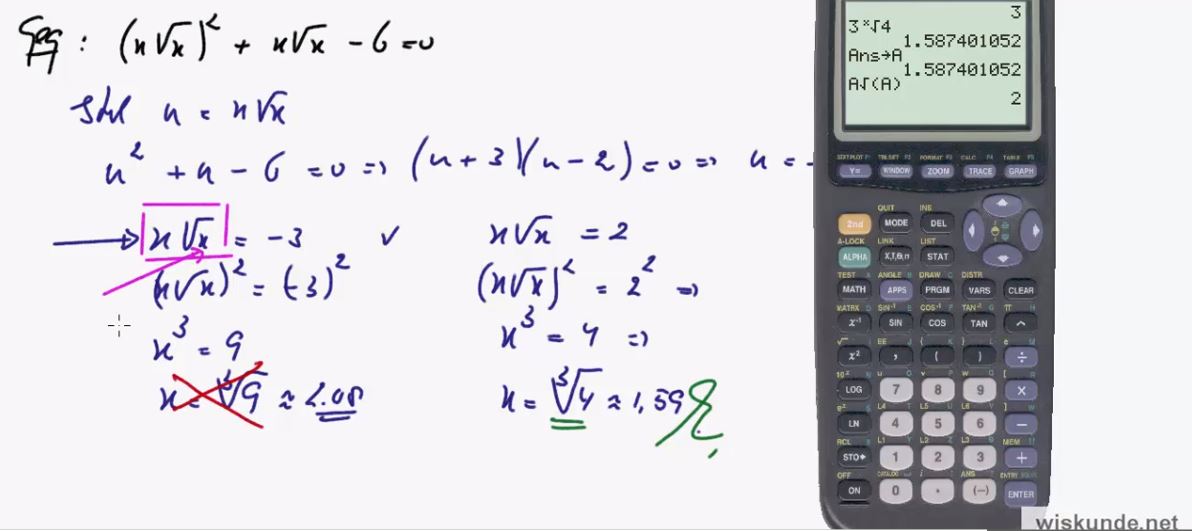 Geg : (x√x)² + x√x - 6 = 0
Stel u = x√x
u² + u - 6 = 0 => (u + 3)(u - 2) = 0 => u = -
x√x = -3 ✓ x√x = 2
(x√x)² = (-3)² (x√x)² = 2² =>
x³ = 9 x³ = 4 =>
x = ³√9 ≈ 2.08 x = ³√4 ≈ 1,59
3
3ˣ√4
1.587401052
Ans→A
1.587401052
A√(A)
2
STATPLOT F1 TBLSET F2 FORMAT F3 CALC F4 TABLE F5
Y= WINDOW ZOOM TRACE GRAPH
QUIT INS
2nd MODE DEL
A-LOCK LINK LIST
ALPHA X,T,θ,n STAT
TEST A ANGLE B DRAW C DISTR
MATH APPS PRGM VARS CLEAR
MATRX D SIN⁻¹ E COS⁻¹ F TAN⁻¹ G π H
x⁻¹ SIN COS TAN ^
√ I EE J { K } L e M
x² , ( ) ÷
10ˣ N u O v P w Q [ R
LOG 7 8 9 ×
eˣ S L4 T L5 U L6 V ] W
LN 4 5 6 −
RCL X L1 Y L2 Z L3 θ MEM "
STO▸ 1 2 3 +
OFF CATALOG i ANS ? ENTRY SOLVE
ON 0 . (−) ENTER
wiskunde.net